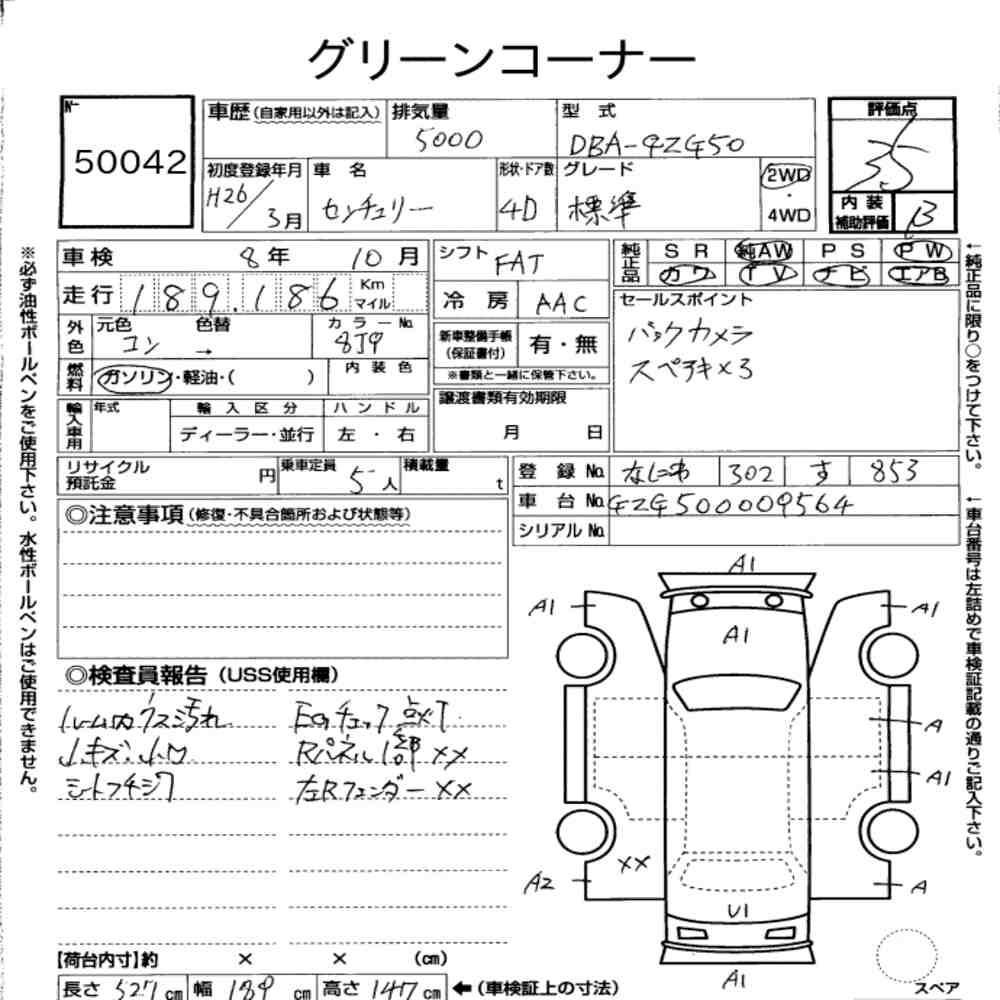 グリーンコーナー
№ 50042
車歴(自家用以外は記入) 排気量 5000 型 式 DBA-GZG50
評価点 3.5
初度登録年月 H26/3月 車 名 センチュリー 形状・ドア数 4D グレード 標準 2WD ・ 4WD
内 装 補助評価 B
車検 8年 10月
シフト FAT
純正品 SR 純AW PS PW
カワ TV ナビ エアB
走行 189.186 Km マイル
冷 房 AAC
セールスポイント
バックカメラ
スペアキ×3
外色 元色 コン 色替 → カラーNo. 8J9
新車整備手帳(保証書付) 有・無
※書類と一緒に保管下さい。
燃料 ガソリン・軽油・( ) 内装色
輸入車用 年式 輸入区分 ハンドル
ディーラー・並行 左・右
譲渡書類有効期限
月 日
リサイクル預託金 円 乗車定員 5人 積載量 t
登 録 No. 302 す 853
車 台 No. GZG500009564
シリアル No.
◎注意事項(修復・不具合箇所および状態等)
◎検査員報告(USS使用欄)
ルーム内 汚れ
小キズ、小凹
シートフチシワ
Egチェック点灯
Rパネル1部××
左Rフェンダー××
A1
A1
A1
A1
A
A1
××
A2
A
U1
A1
スペア
【荷台内寸】約 × × (cm)
長さ 527 cm 幅 189 cm 高さ 147 cm ←(車検証上の寸法)
※必ず油性ボールペンをご使用下さい。水性ボールペンはご使用できません。
←純正品に限り○をつけて下さい。
←車台番号は左詰めで車検証記載の通りご記入下さい。